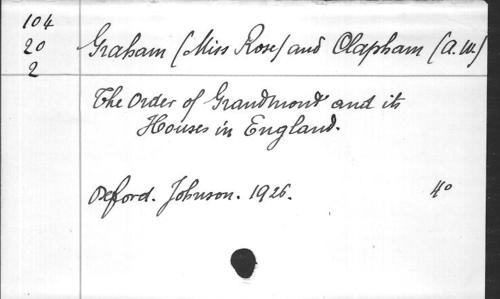 104
20
2
Graham (Miss Rose) and Clapham (A.W.)
The Order of Grandmont and its
Houses in England.
Oxford. Johnson. 1926. 4º